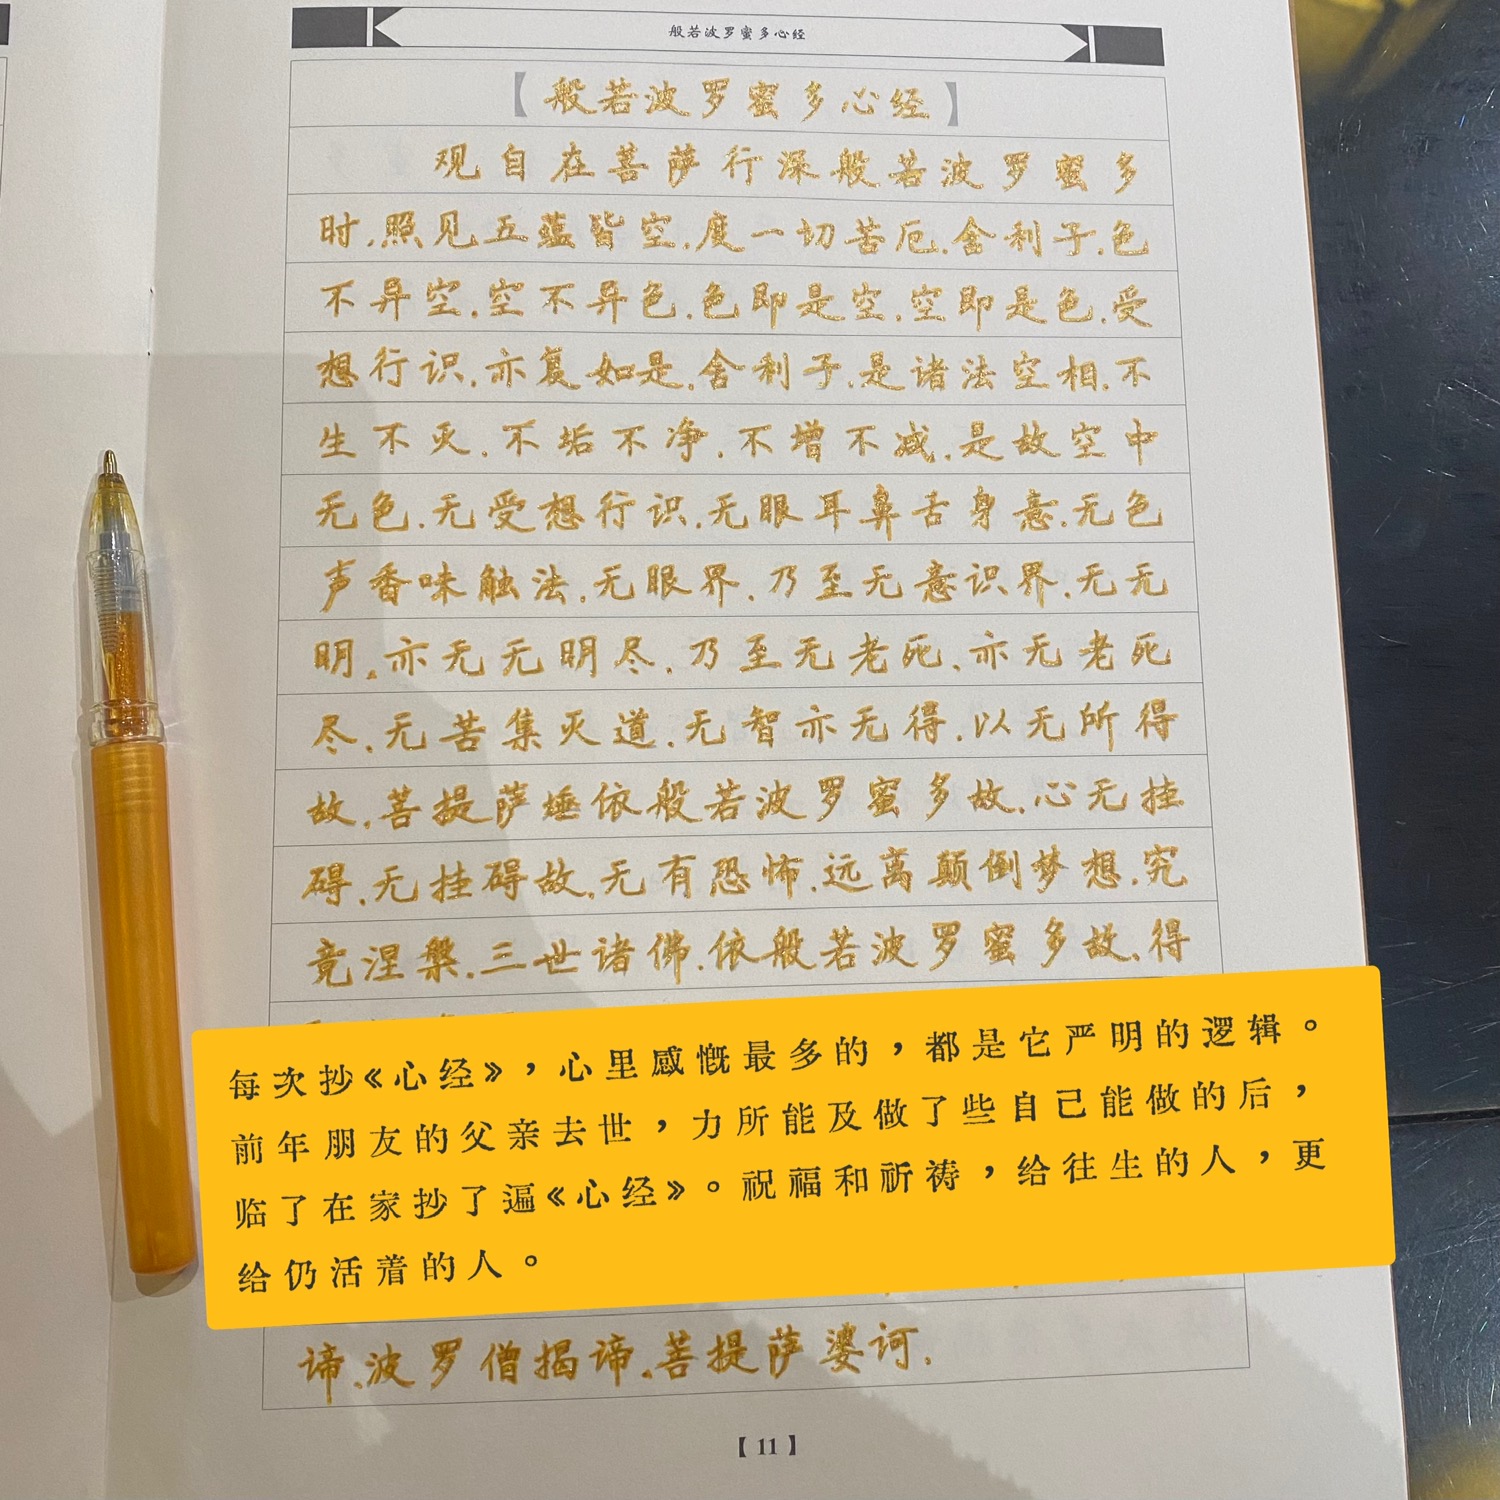 般若波罗蜜多心经
【般若波罗蜜多心经】
观自在菩萨行深般若波罗蜜多
时.照见五蕴皆空.度一切苦厄.舍利子.色
不异空.空不异色.色即是空.空即是色.受
想行识.亦复如是.舍利子.是诸法空相.不
生不灭.不垢不净.不增不减.是故空中
无色.无受想行识.无眼耳鼻舌身意.无色
声香味触法.无眼界.乃至无意识界.无无
明.亦无无明尽.乃至无老死.亦无老死
尽.无苦集灭道.无智亦无得.以无所得
故.菩提萨埵依般若波罗蜜多故.心无挂
碍.无挂碍故.无有恐怖.远离颠倒梦想.究
竟涅槃.三世诸佛.依般若波罗蜜多故.得
每次抄《心经》，心里感慨最多的，都是它严明的逻辑。
前年朋友的父亲去世，力所能及做了些自己能做的后，
临了在家抄了遍《心经》。祝福和祈祷，给往生的人，更
给仍活着的人。
谛.波罗僧揭谛.菩提萨婆诃.
【11】